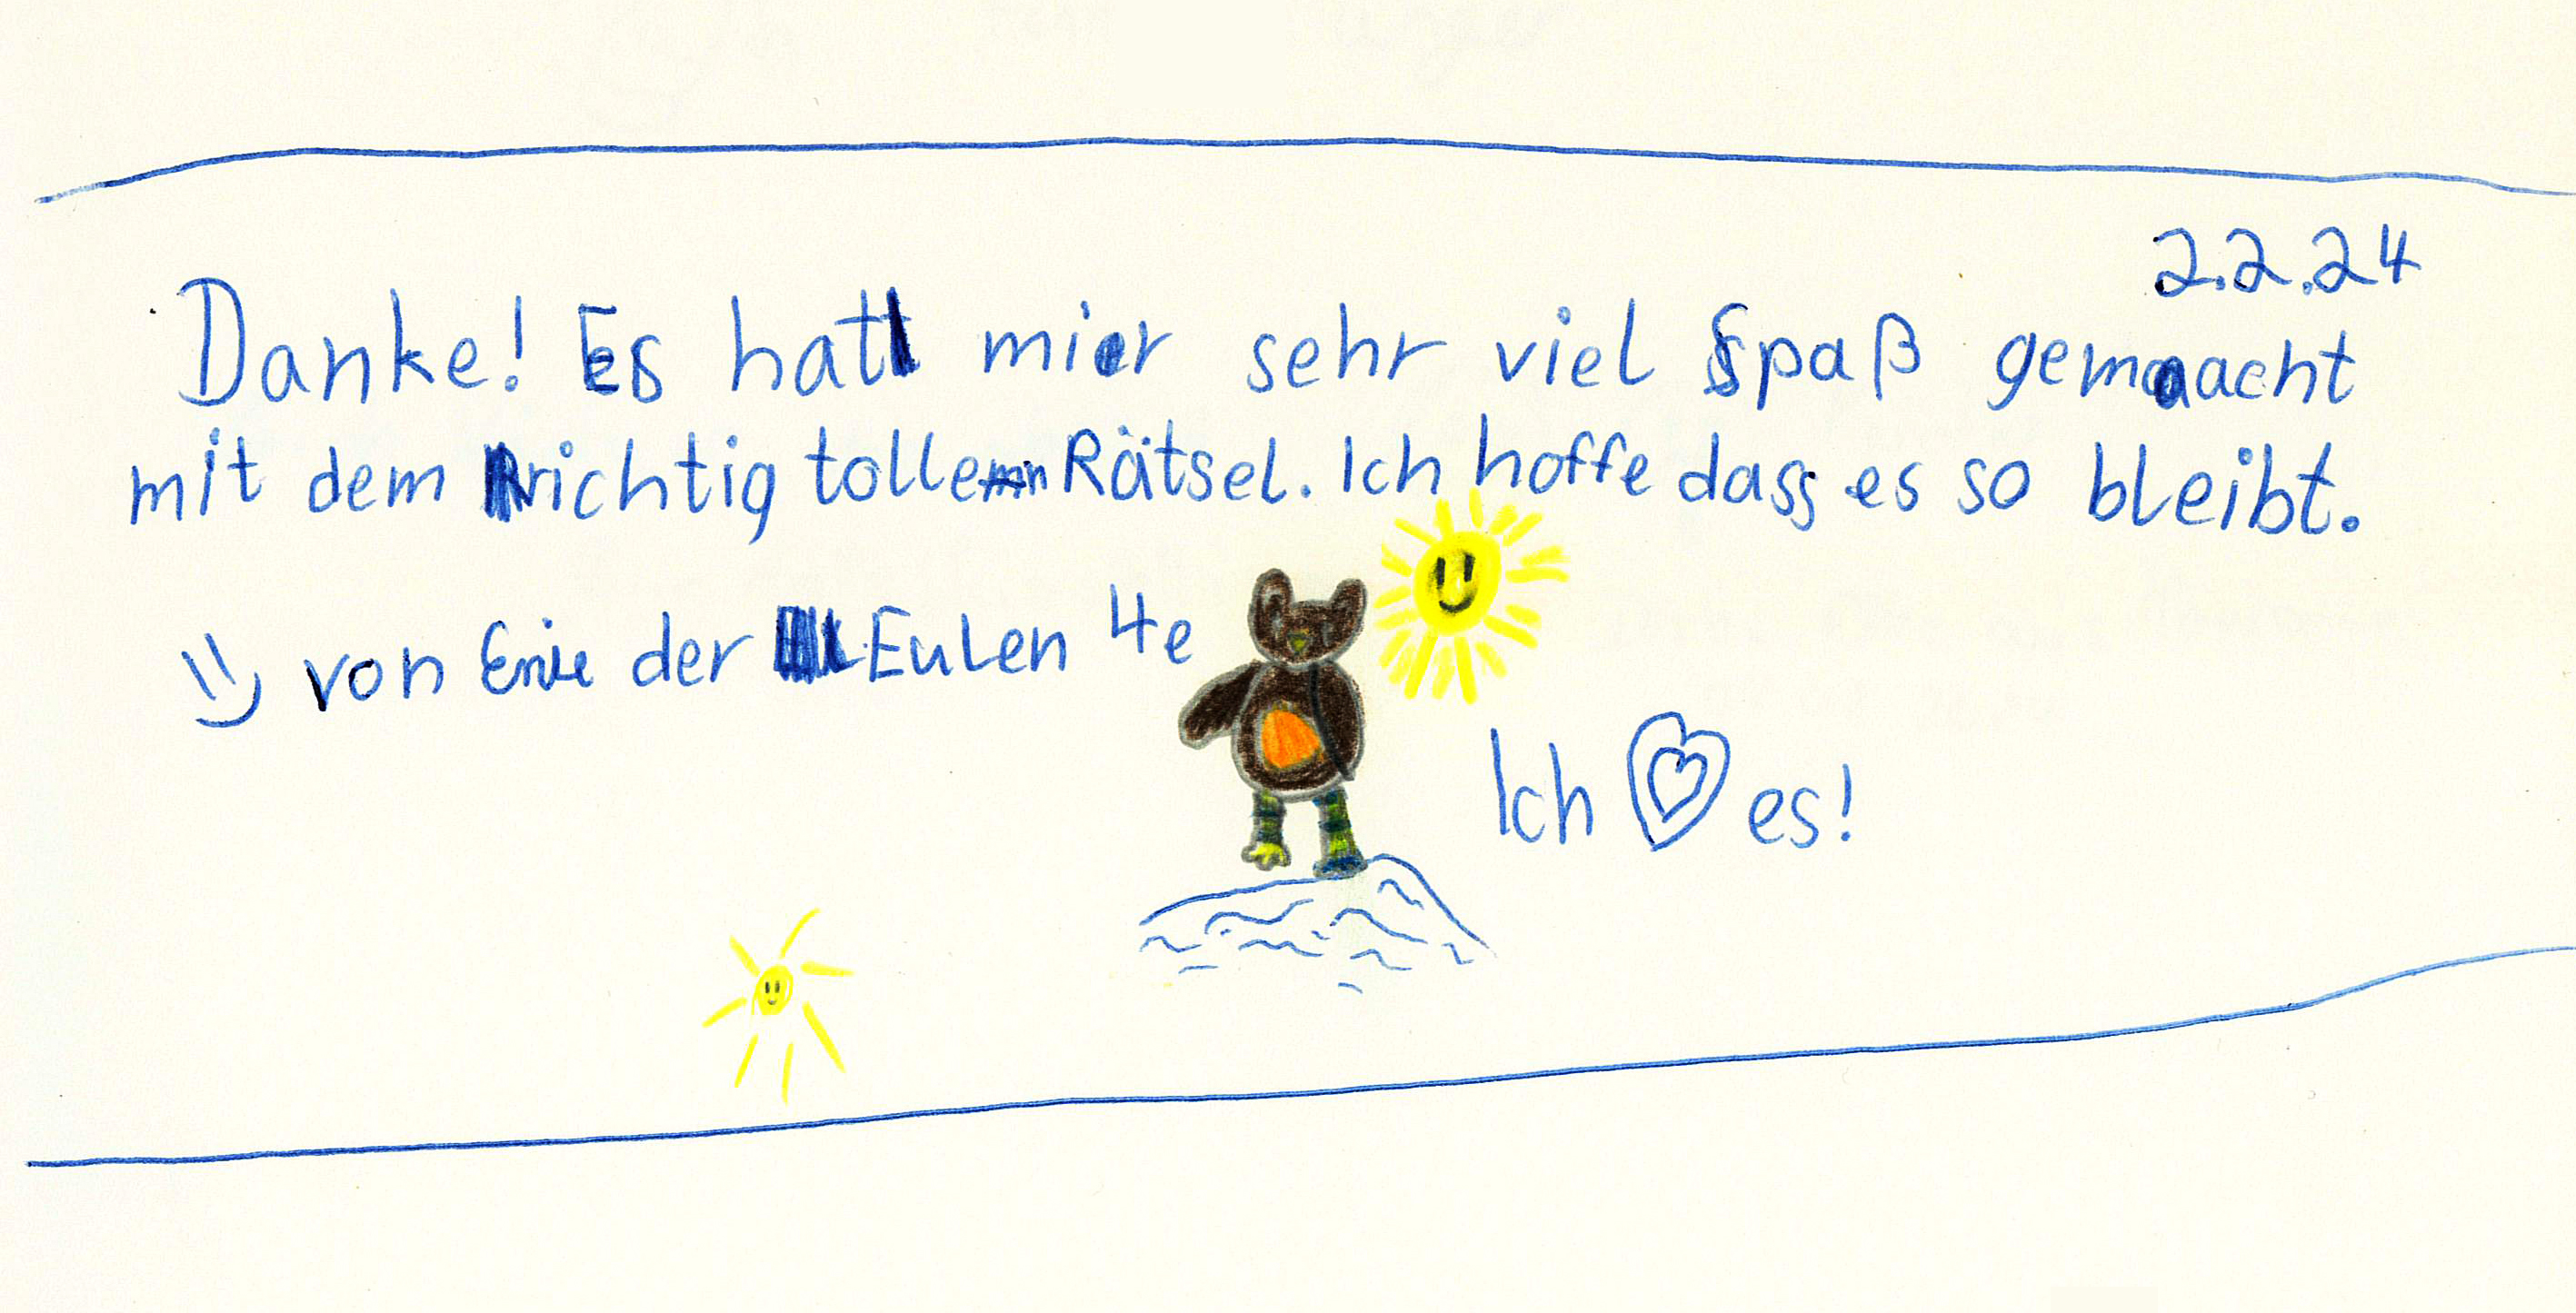 2.2.24
Danke! Es hat mir sehr viel Spaß gemacht
mit dem richtig tollen Rätsel. Ich hoffe dass es so bleibt.
von Enie der Eulen 4e
Ich es!